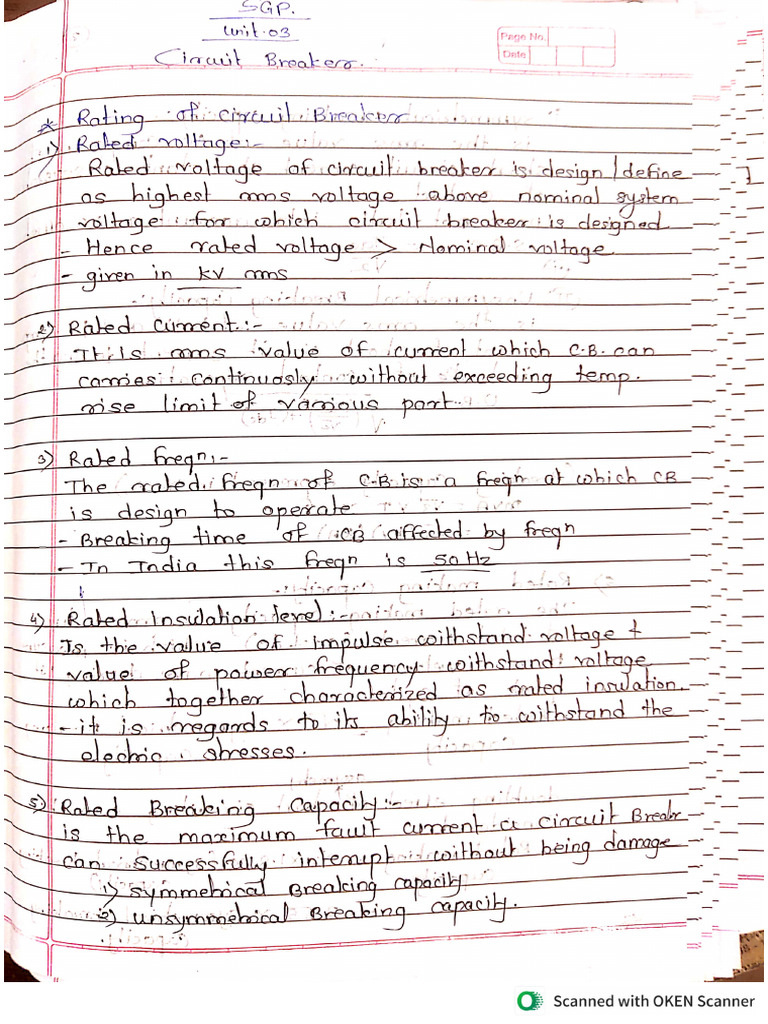 SGP.
Unit.03
Page No.
Date
Circuit Breaker.
* Rating of circuit Breaker
1) Rated voltage:-
- Rated voltage of circuit breaker is design/define
as highest rms voltage above nominal system
voltage for which circuit breaker is designed
- Hence rated voltage > Nominal voltage
- given in kv rms
2) Rated current:-
It is rms value of current which C.B. can
carries continuosly without exceeding temp.
rise limit of various part.
3) Rated freqn:-
The rated freqn of C.B is a freqn at which CB
is design to operate
- Breaking time of CB affected by freqn
- In India this freqn is 50 Hz
4) Rated Insulation level:-
Is the value of impulse withstand voltage &
value of power frequency withstand voltage
which together characterized as rated insulation.
- it is regards to its ability to withstand the
electric stresses.
5) Rated Breaking Capacity:-
is the maximum fault current a circuit Breakr
can successfully interrupt without being damage
1) symmetrical Breaking capacity
2) unsymmetrical Breaking capacity.
Scanned with OKEN Scanner